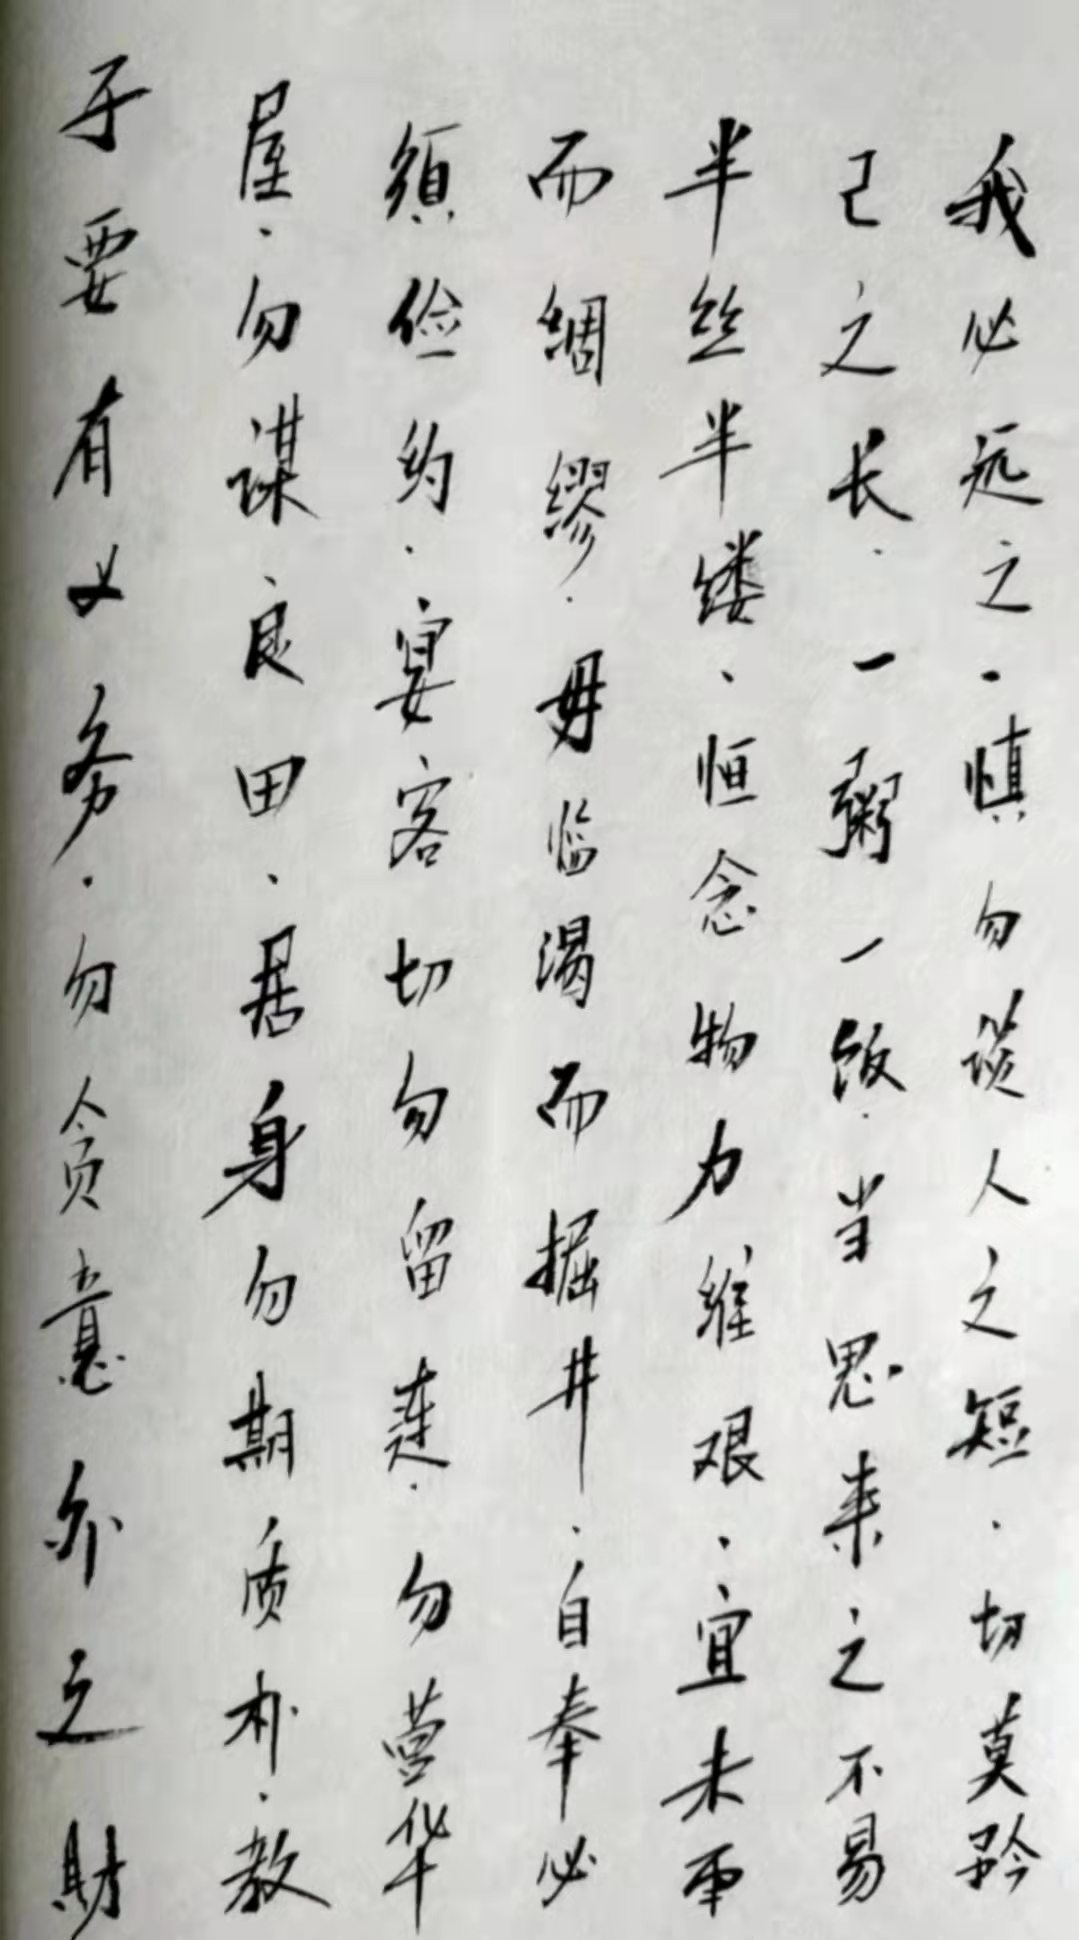 我必远之·慎勿谈人之短·切莫矜
己之长·一粥一饭·当思来之不易
半丝半缕·恒念物力维艰·宜未雨
而绸缪·毋临渴而掘井·自奉必
須俭约·宴客切勿留连·勿营华
屋·勿谋良田·居身勿期质朴·教
子要有义务·勿贪意外之财